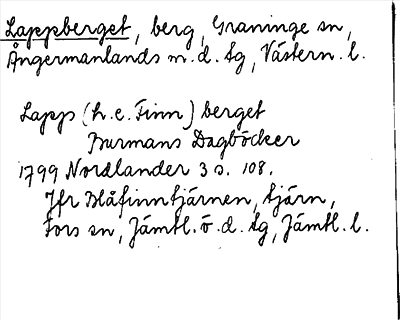 Lappberget, berg, Graninge sn,
Ångermanlands m. d. tg, Västern. l.
Lapp (h. e. Finn) berget
Burmans Dagböcker
1799 Nordlander 3 s. 108.
Jfr Blåfinntjärnen, tjärn,
Fors sn, Jämtl. ö. d. tg, Jämtl. l.